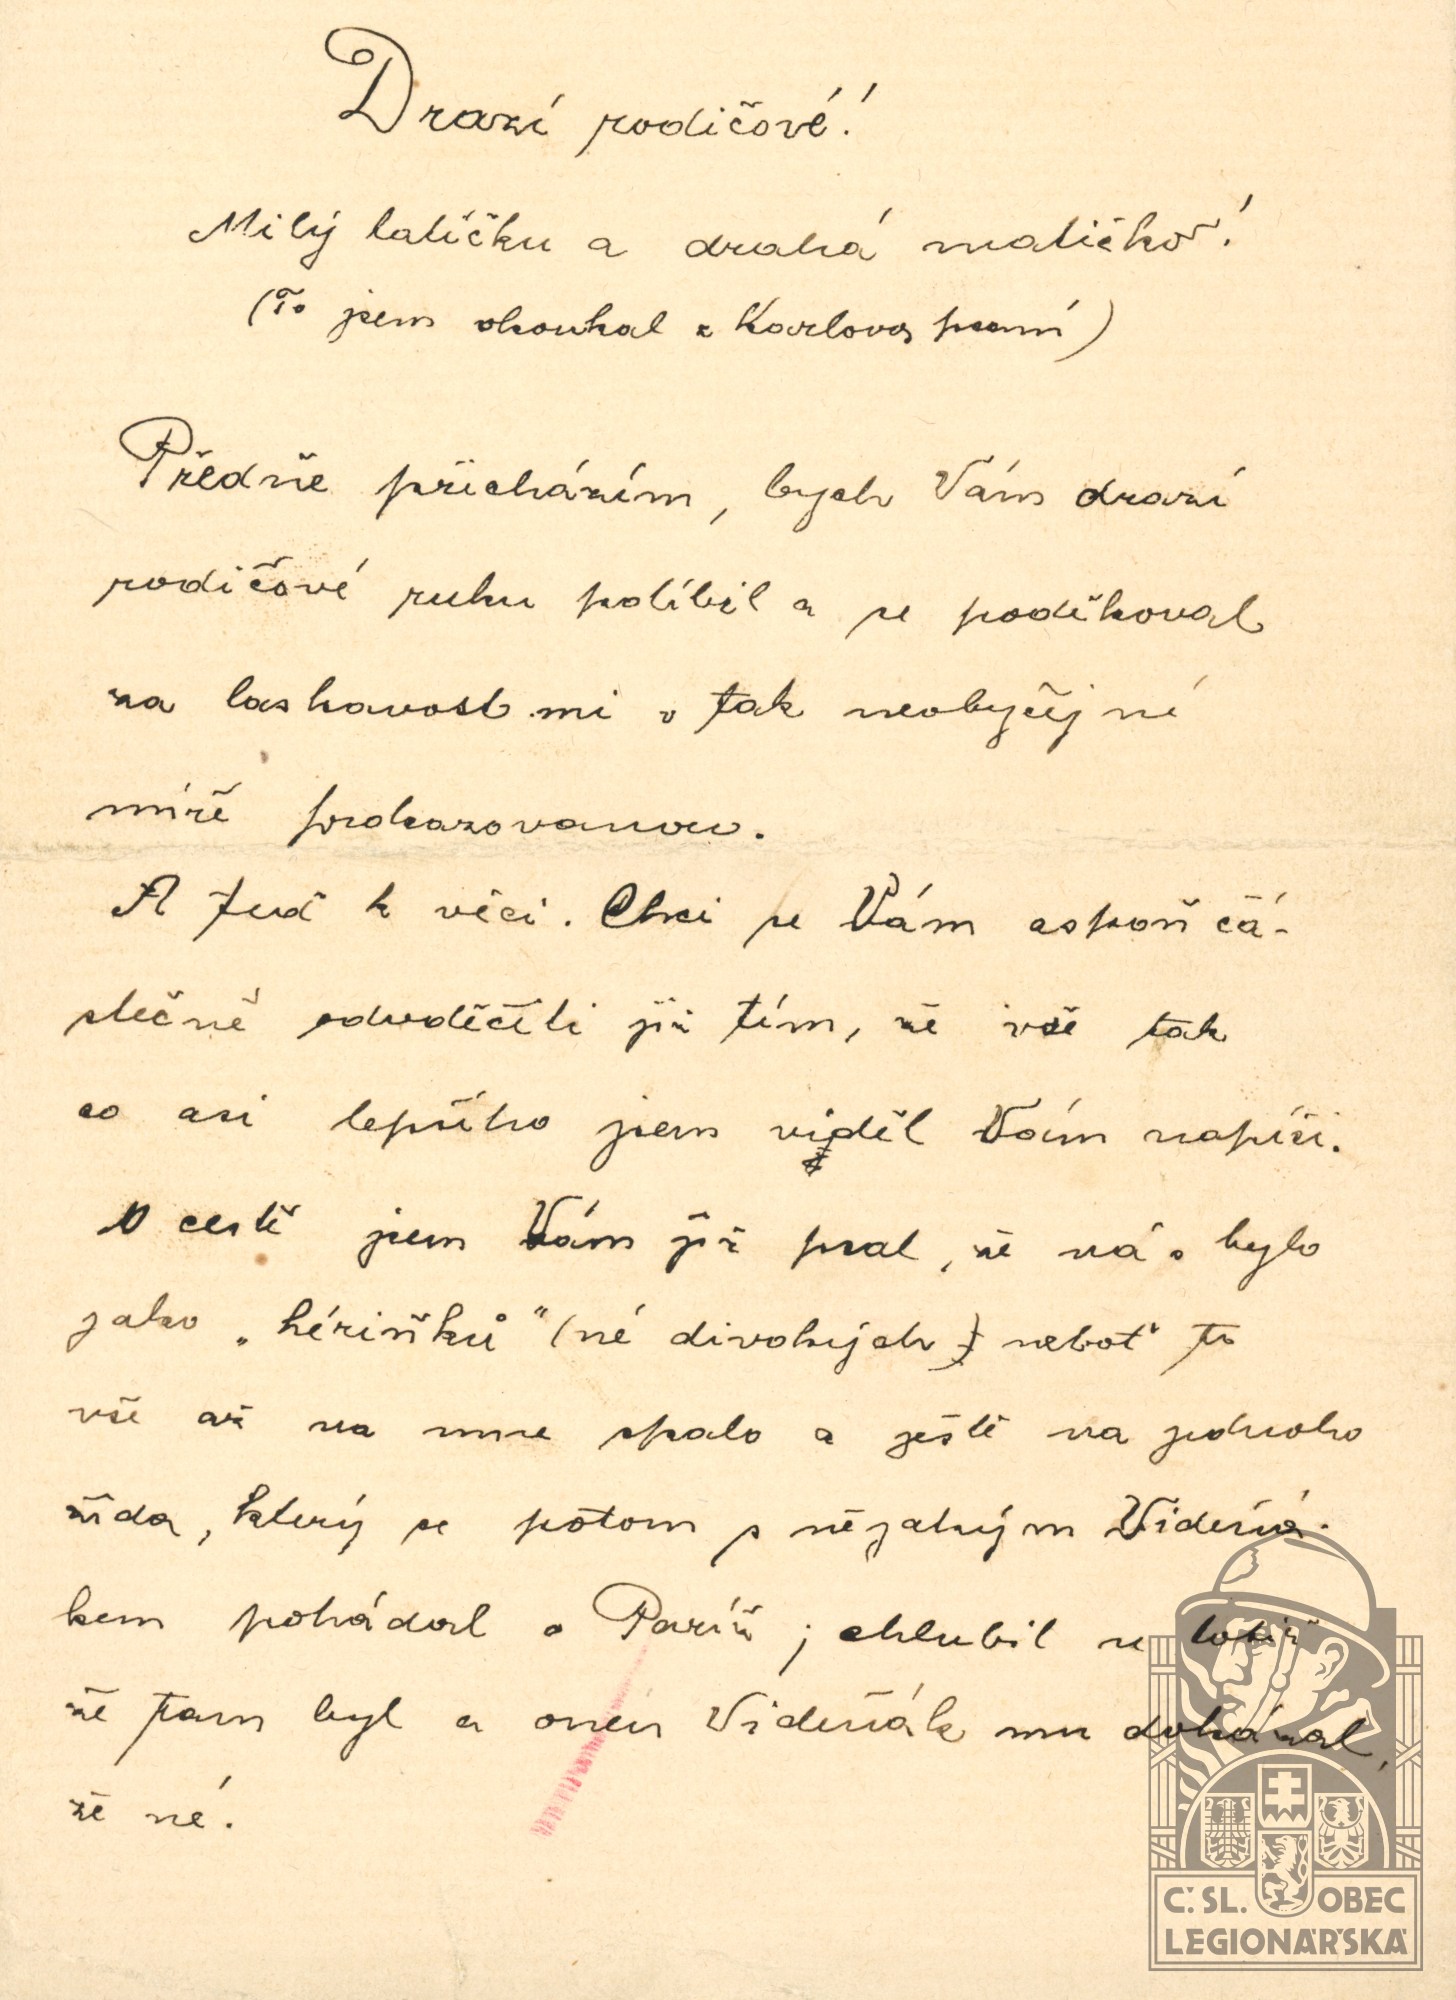 Drazí rodičové!
Milý tatíčku a drahá matičko!
(To jem okoukal z Karlova psaní)
Předně přicházím, bych Vám drazí
rodičové ruku políbil a se poděkoval
za laskavost mi v tak neobyčejné
míře prokazovanou.
A teď k věci. Chci se Vám aspoň čá-
stečně odvděčiti již tím, že vše tak
co asi lepšího jsem viděl Vám napíši.
O cestě jsem Vám již psal, že nás bylo
jako „hériňků" (né divokých) neboť to
vše až na mne spalo a ještě na jednoho
žida, který se potom s nějakým Vídeňá-
kem pohádal o Paříž; chlubil se totiž
že tam byl a onen Vídeňák mu dokázal,
že né.
Č. SL. OBEC
LEGIONÁŘSKÁ